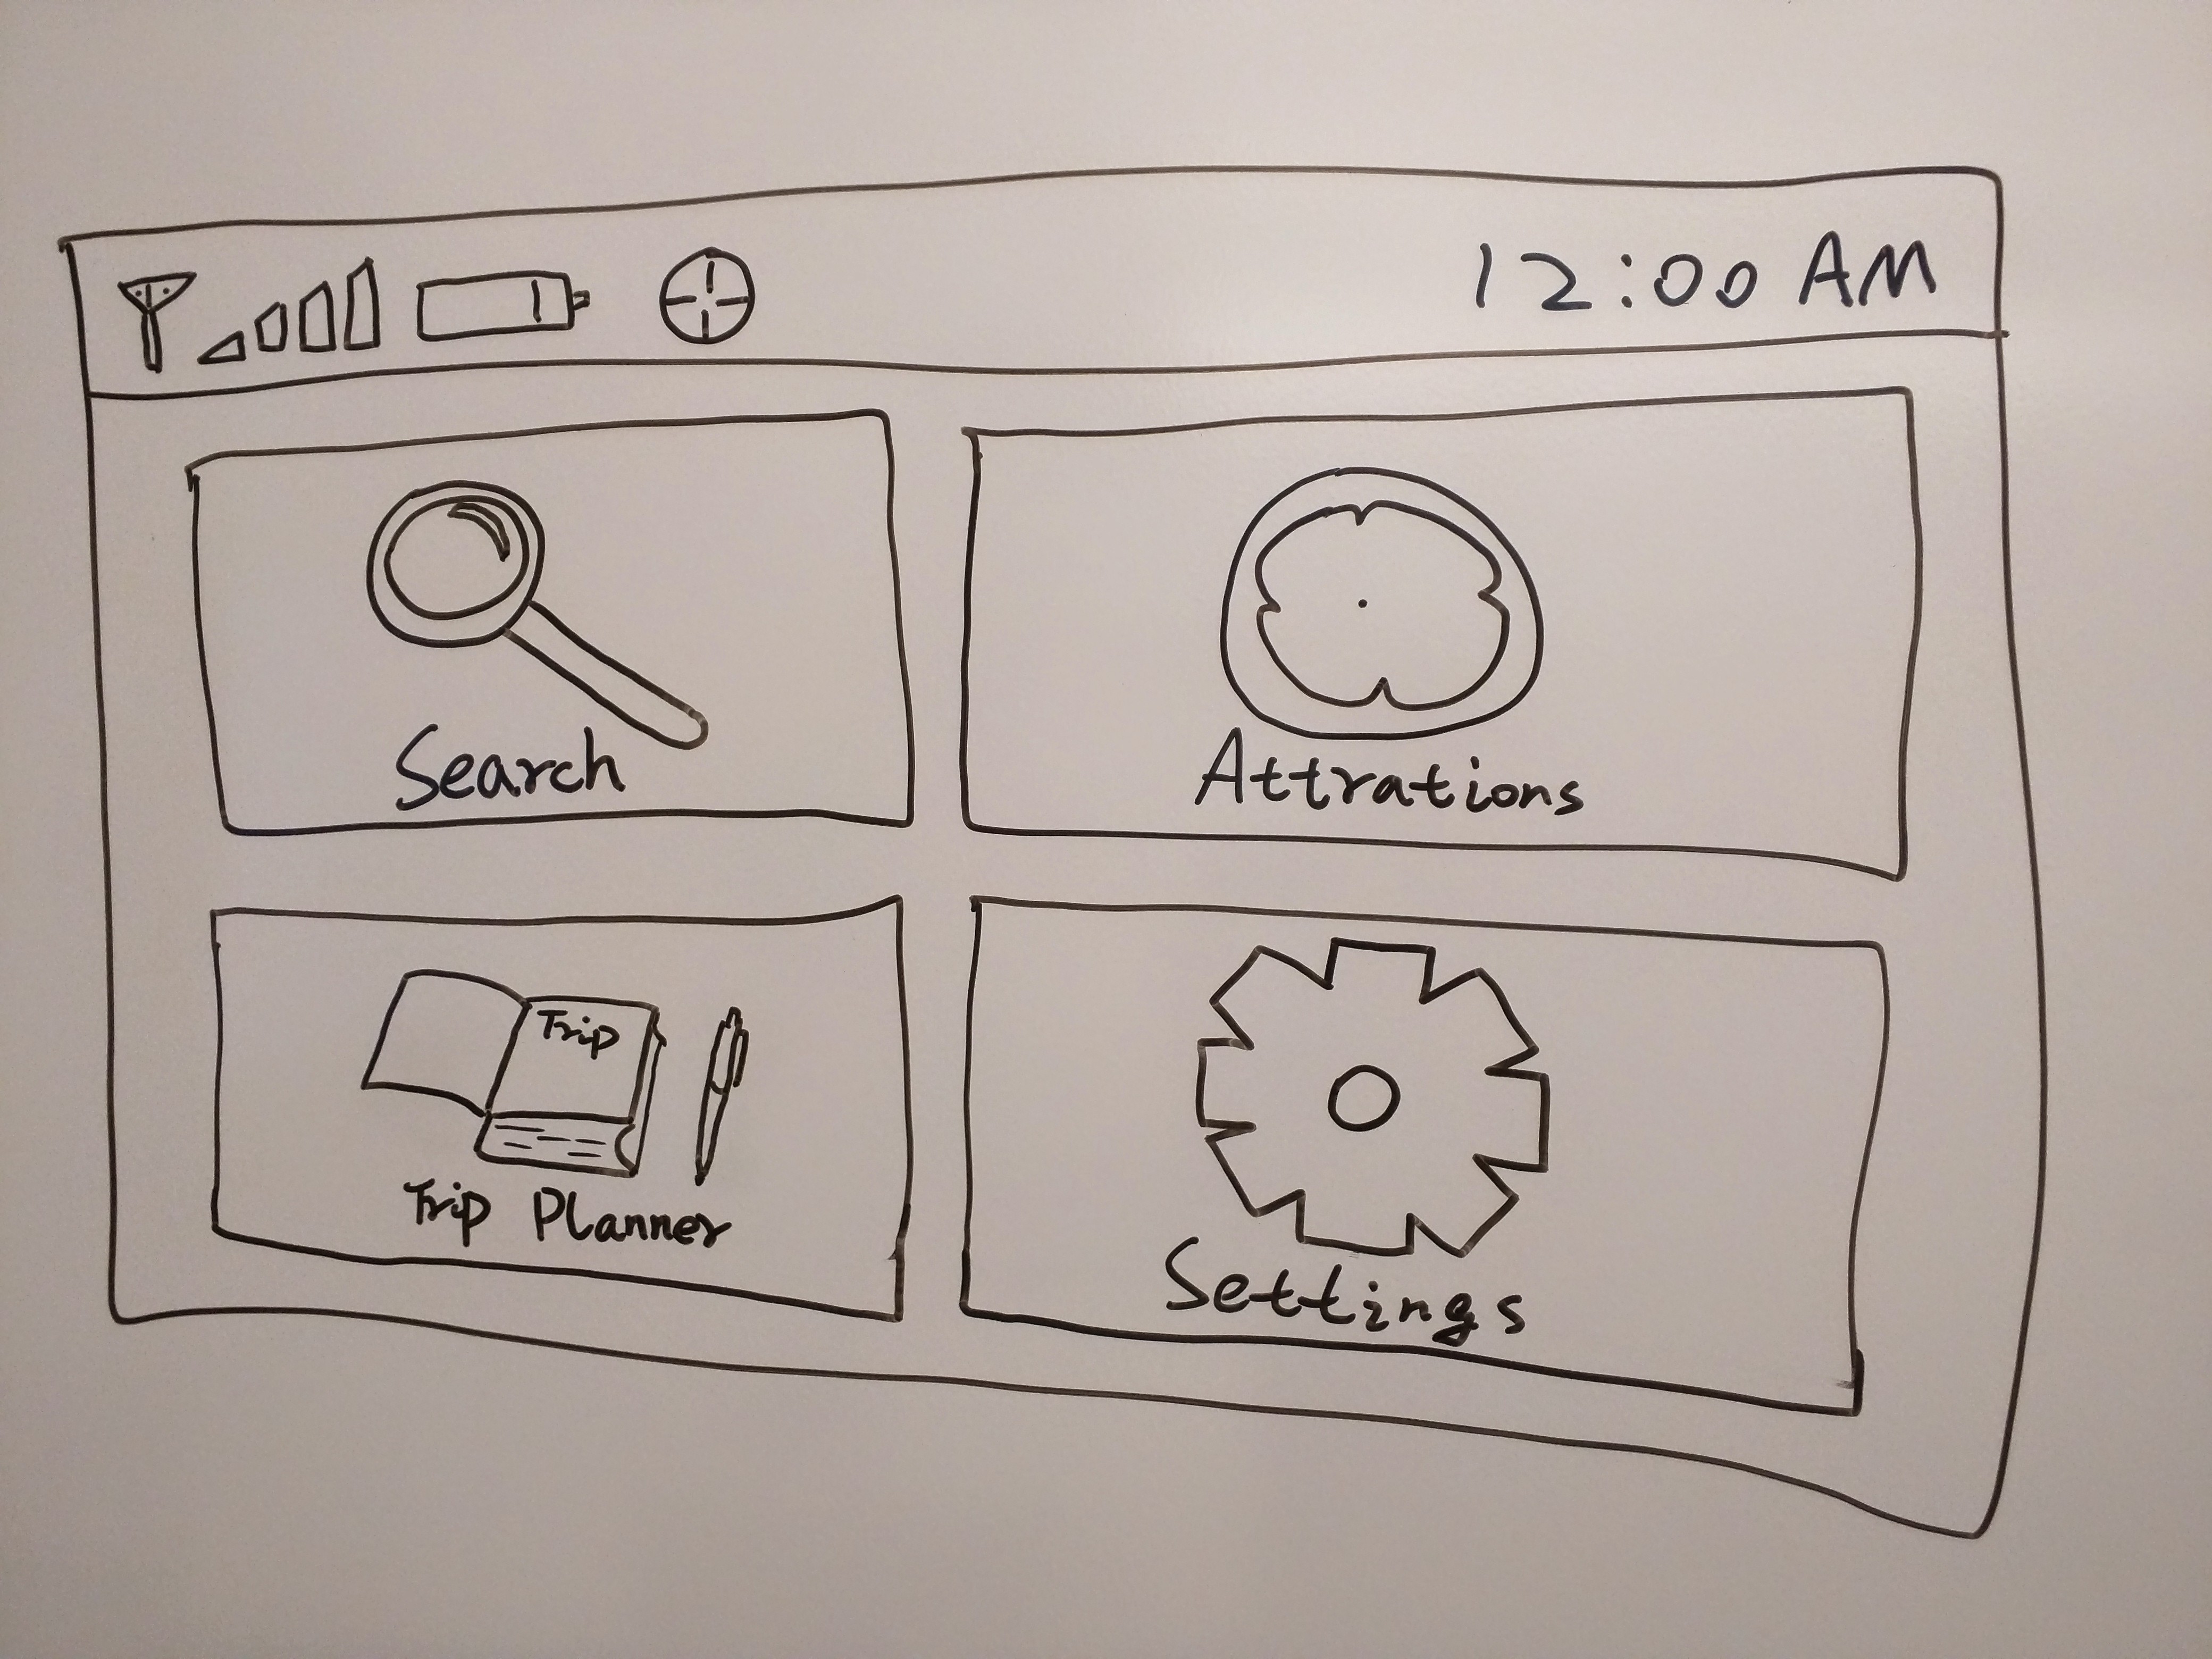 12:00 AM
Search
Attrations
Trip
Trip Planner
Settings